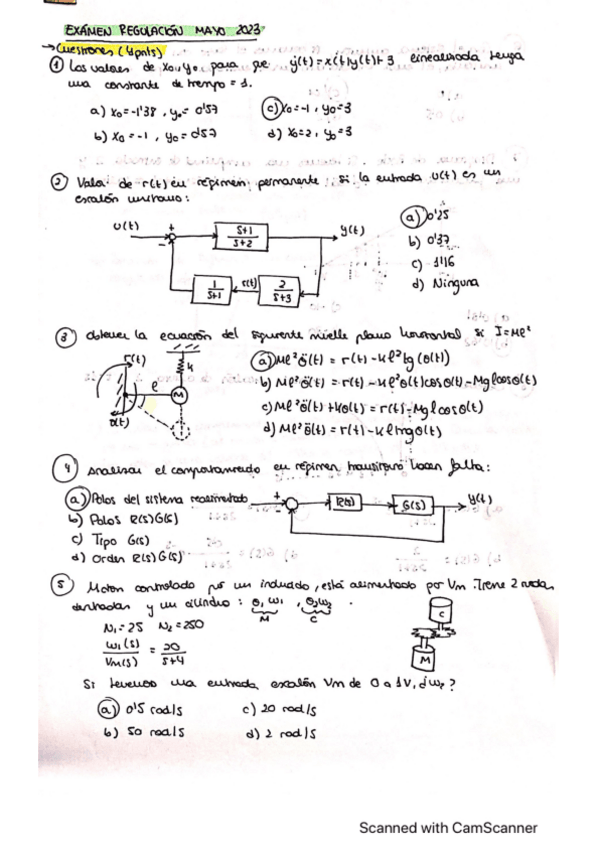 EXÁMEN REGULACIÓN MAYO 2023
→ Cuestiones (4 pnts)
① Los valores de x0, y0 para que ẏ(t)=x(t)y(t)+3 linealizada tenga
una constante de tiempo = 1.
a) x0=-1'38, y0= 0'57
b) x0 = -1, y0= 0'57
c) x0=-1, y0=3
d) x0=2, y0=3
② Valor de r(t) en régimen permanente si la entrada u(t) es un
escalón unitario:
u(t)
+
-
s+1
s+2
y(t)
1
s+1
r(t)
2
s+3
a) 0'25
b) 0'37
c) 1'16
d) Ninguna
③ Obtener la ecuación del siguiente muelle plano horizontal si I=Ml²
r(t)
l
k
M
θ(t)
a) Ml²θ̈(t) = r(t)-kl²tg(θ(t))
b) Ml²θ̈(t) = r(t)-kl²θ(t)cosθ(t)-Mglcosθ(t)
c) Ml²θ̈(t)+kθ(t) = r(t)-Mglcosθ(t)
d) Ml²θ̈(t) = r(t)-kltngθ(t)
④ Analizar el comportamiento en régimen transitorio hacen falta:
a) Polos del sistema realimentado
b) Polos R(s)G(s)
c) Tipo G(s)
d) Orden R(s)G(s)
+
-
R(s)
G(s)
y(t)
⑤ Motor controlado por un inducido, está alimentado por Vm. Tiene 2 ruedas
dentadas y un cilindro: θ1 ω1, θ2 ω2.
M C
N1=25 N2=250
ω1(s)
Vm(s)
=
20
s+4
C
M
Si tenemos una entrada escalón Vm de 0 a 1V, ¿ω2?
a) 0'5 rad/s
b) 50 rad/s
c) 20 rad/s
d) 2 rad/s
Scanned with CamScanner